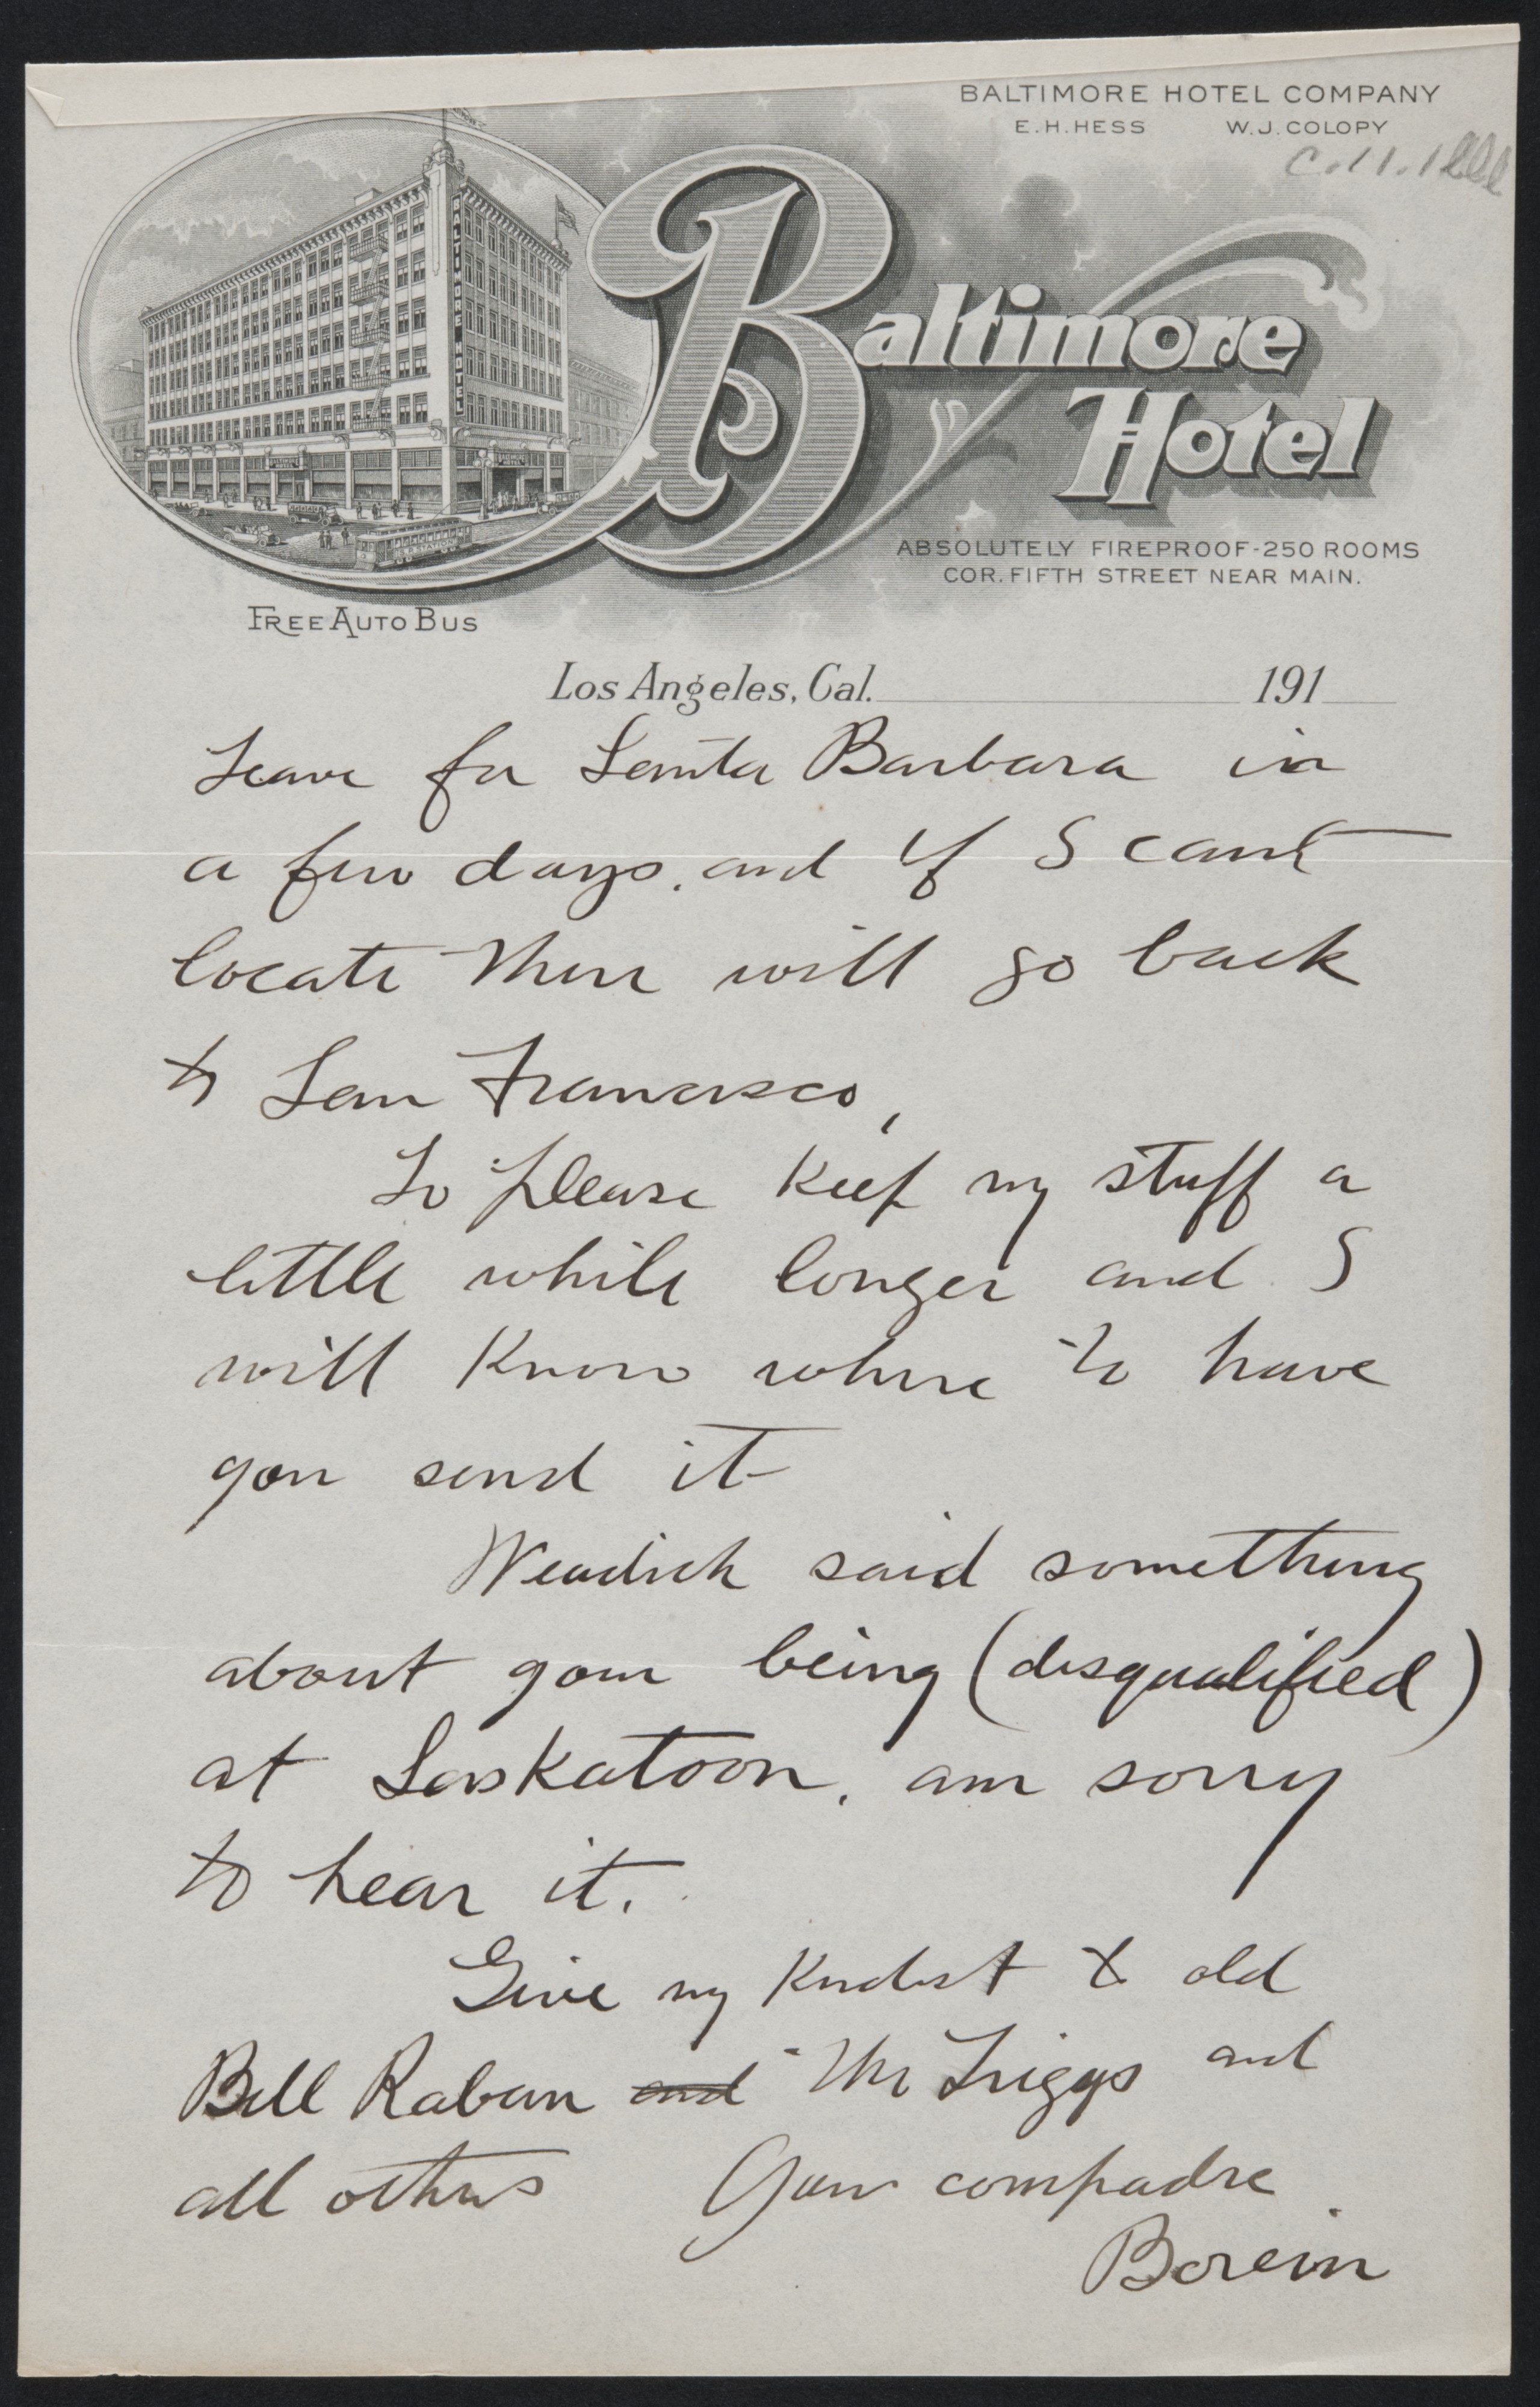 BALTIMORE HOTEL COMPANY
E.H.HESS W.J.COLOPY
C.11.1
BALTIMORE HOTEL
Baltimore
Hotel
ABSOLUTELY FIREPROOF-250 ROOMS
COR. FIFTH STREET NEAR MAIN.
FREE AUTO BUS
Los Angeles, Cal. 191
Leave for Santa Barbara in
a few days. and if I cant
locate there will go back
to San Francisco,
So please keep my stuff a
little while longer and I
will know where to have
you send it
Weadick said something
about your being (disqualified)
at Saskatoon, am sorry
to hear it.
Give my kindest to old
Bill Raban and Mr Triggs and
all others Your compadre
Borein